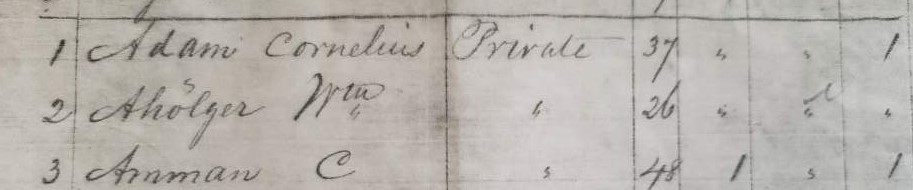 1 Adam Cornelius Private 37 " " 1
2 Ahölger Wm " 26 " " "
3 Amman C " 48 1 " 1